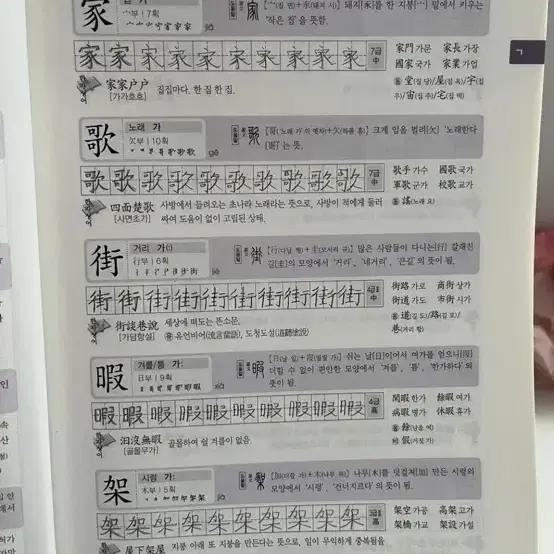 家
宀부 | 7획
돼지[家]를 한 지붕[宀] 밑에서 키우는
'작은 집'을 뜻함.
家家家家家家家家家家
7급
中
家門 가문 家長 가장
國家 국가 家業 가업
堂(집 당)/屋(집 옥)/宇(집
우)/宙(집 주)/宅(집 택)
家家戶戶 집집마다. 한 집 한 집.
[가가호호]
ㄱ
歌
노래 가
欠부 | 10획
gē
크게 입을 벌려[欠] '노래한다
[哥]'는 뜻.
歌歌歌歌歌歌歌歌歌歌
7급
中
歌手 가수 國歌 국가
軍歌 군가 校歌 교가
謠(노래 요)
四面楚歌 사방에서 들려오는 초나라 노래라는 뜻으로, 사방이 적에게 둘러
[사면초가] 싸여 도움이 없이 고립된 상태.
街
거리 가
行부 | 6획
jiē
많은 사람들이 다니는[行] 갈래진
길[圭]의 모양에서 '거리', '네거리', '큰길'의 뜻이 됨.
街街街街街街街街街街
4급Ⅱ
中
街路 가로 商街 상가
街道 가도 市街 시가
道(길 도)/路(길 로)/
巷(거리 항)
街談巷說 세상에 떠도는 뜬소문.
[가담항설] 유언비어(流言蜚語), 도청도설(道聽塗說)
暇
겨를/틈 가:
日부 | 9획
xiá
쉬는 날[日]이어서 여가를 얻으니[叚]
더할 수 없이 편안한 모양에서 '겨를', '틈', '한가하다'의 뜻이 됨.
暇暇暇暇暇暇暇暇暇暇
4급
高
閑暇 한가 餘暇 여가
病暇 병가 休暇 휴가
餘(남을 여)
假(거짓 가)
汨沒無暇 골몰하여 쉴 겨를이 없음.
[골몰무가]
架
시렁 가:
木부 | 5획
jià
나무[木]를 덧걸쳐[加] 만든 시렁의
모양에서 '시렁', '건너지르다'의 뜻이 됨.
架架架架架架架架架架
高
架空 가공 高架 고가
架橋 가교 架設 가설
屋下架屋 지붕 아래 또 지붕을 만든다는 뜻으로, 일이 무익하게 중복됨을